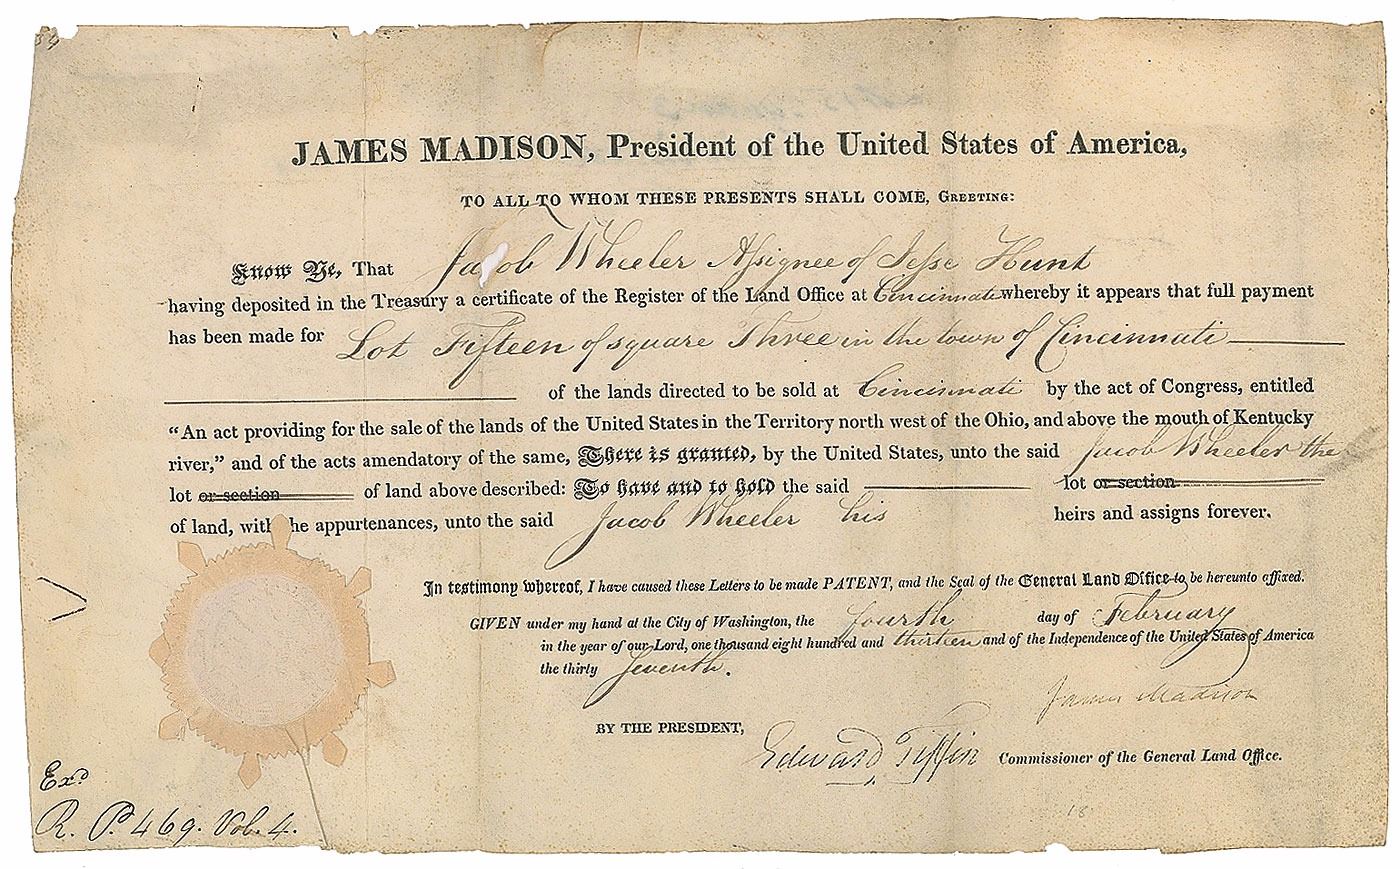 JAMES MADISON, President of the United States of America,
TO ALL TO WHOM THESE PRESENTS SHALL COME, GREETING:
Know Ye, That Jacob Wheeler Assignee of Jesse Hunt
having deposited in the Treasury a certificate of the Register of the Land Office at Cincinnati whereby it appears that full payment
has been made for Lot Fifteen of square Three in the town of Cincinnati
of the lands directed to be sold at Cincinnati by the act of Congress, entitled
“An act providing for the sale of the lands of the United States in the Territory north west of the Ohio, and above the mouth of Kentucky
river,” and of the acts amendatory of the same, There is granted, by the United States, unto the said Jacob Wheeler the
lot or section of land above described: To have and to hold the said lot or section
of land, with the appurtenances, unto the said Jacob Wheeler his heirs and assigns forever.
In testimony whereof, I have caused these Letters to be made PATENT, and the Seal of the General Land Office to be hereunto affixed.
GIVEN under my hand at the City of Washington, the fourth day of February
in the year of our Lord, one thousand eight hundred and thirteen and of the Independence of the United States of America
the thirty seventh.
James Madison
BY THE PRESIDENT,
Edward Tiffin Commissioner of the General Land Office.
Exd
R. P. 469. Vol. 4.
18